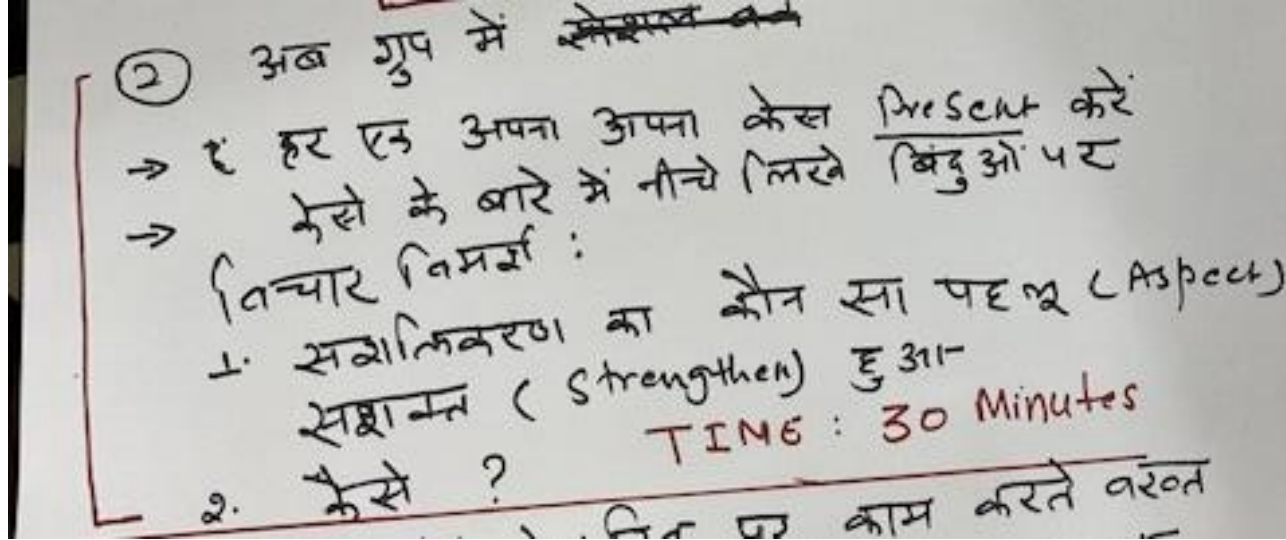 ② अब ग्रुप में
→ हर एक अपना अपना केस Present करें
→ केसे के बारे में नीचे लिखे बिंदुओं पर
विचार विमर्श :
1. सशक्तिकरण का कौन सा पहलू (Aspect)
सशक्त (Strengthen) हुआ
TIME : 30 Minutes
2. कैसे ?
पर काम करते वक्त